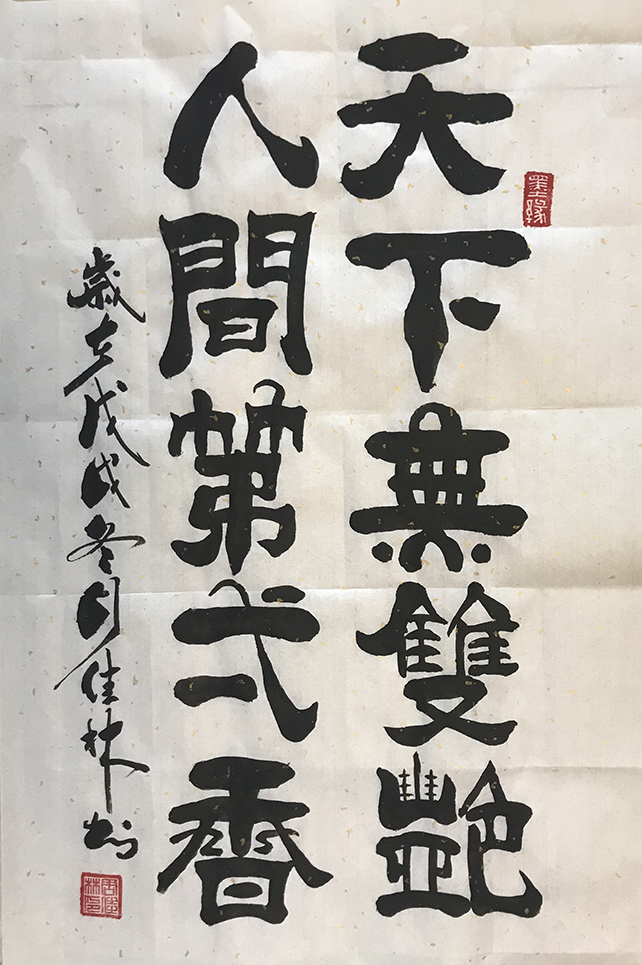 天下無雙艷
人間第弌香
歲在戊戌冬月佳林書
墨緣